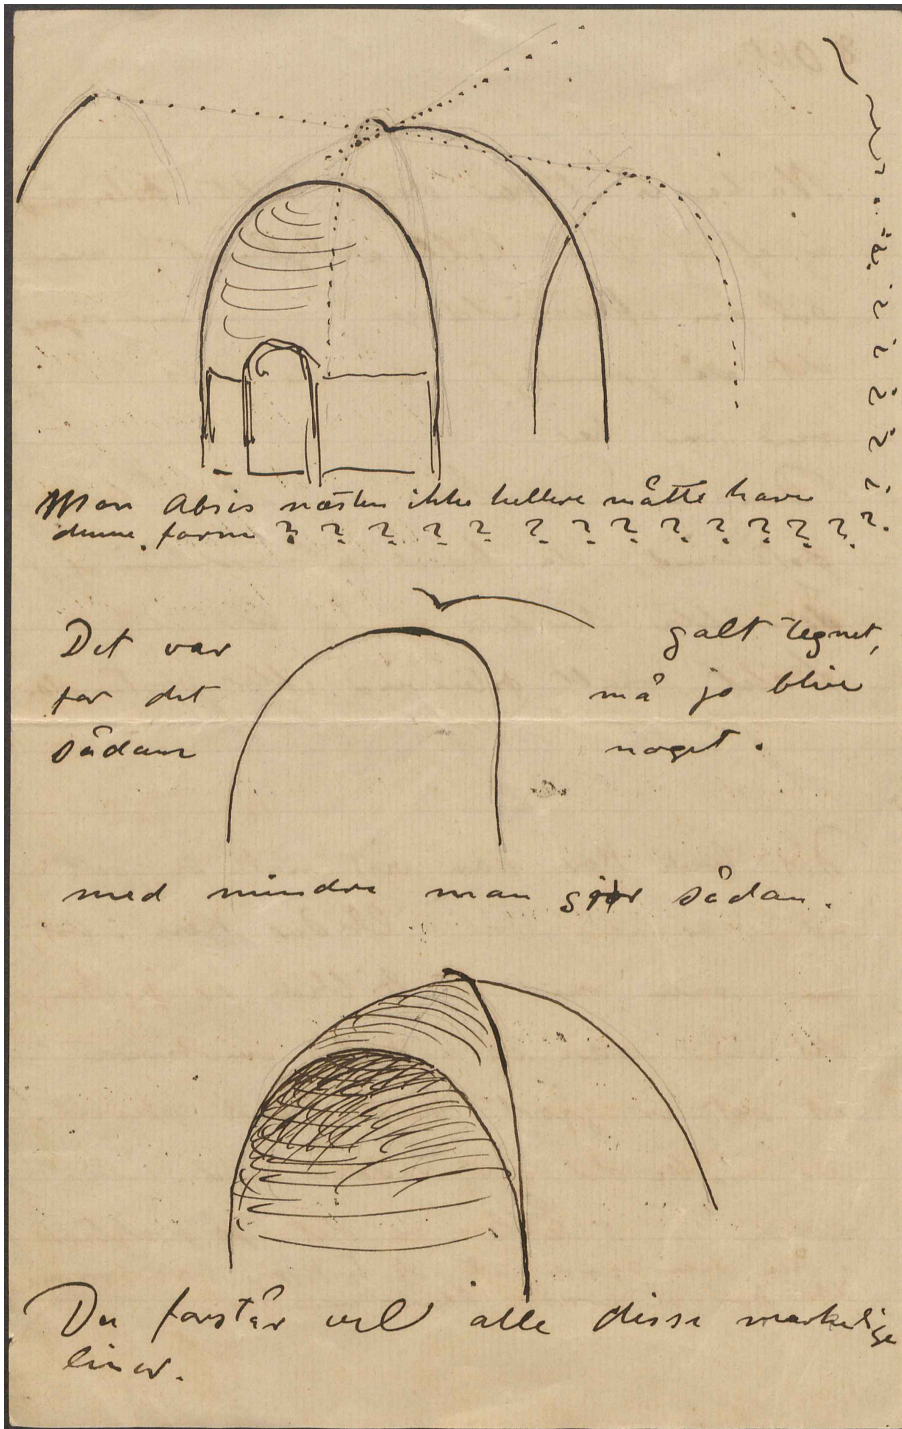 Mon Absis næsten ikke hellere måtte have
denne form ? ? ? ? ? ? ? ? ? ? ? ? ? ?
Det var galt tegnet,
for det må jo blive
sådan noget.
med mindre man gjør sådan.
Du forstår vel alle disse mærkelige
linier.